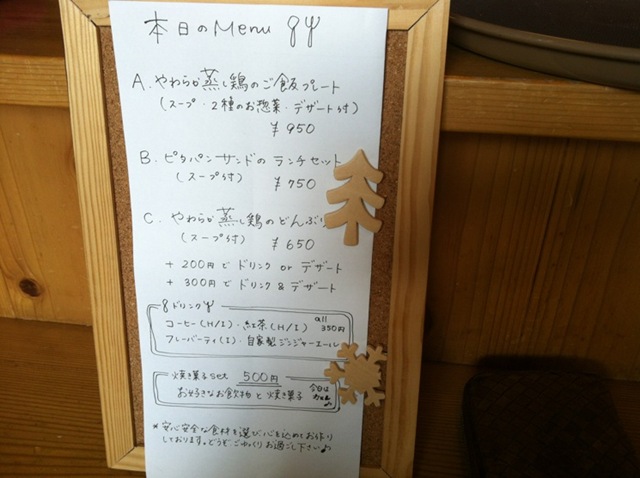 本日のMenu
A. やわらか蒸し鶏のご飯プレート
(スープ・2種のお惣菜・デザート付)
¥950
B. ピタパンサンドのランチセット
(スープ付) ¥750
C. やわらか蒸し鶏のどんぶり
(スープ付) ¥650
+ 200円でドリンク or デザート
+ 300円でドリンク & デザート
ドリンク
コーヒー(H/I)・紅茶(H/I) all 350円
フレーバーティ(I)・自家製ジンジャーエール
焼き菓子set 500円
お好きなお飲物と焼き菓子 今日は
*安心安全な食材を選び、心を込めてお作り
しております。どうぞごゆっくりお過ごし下さい♪